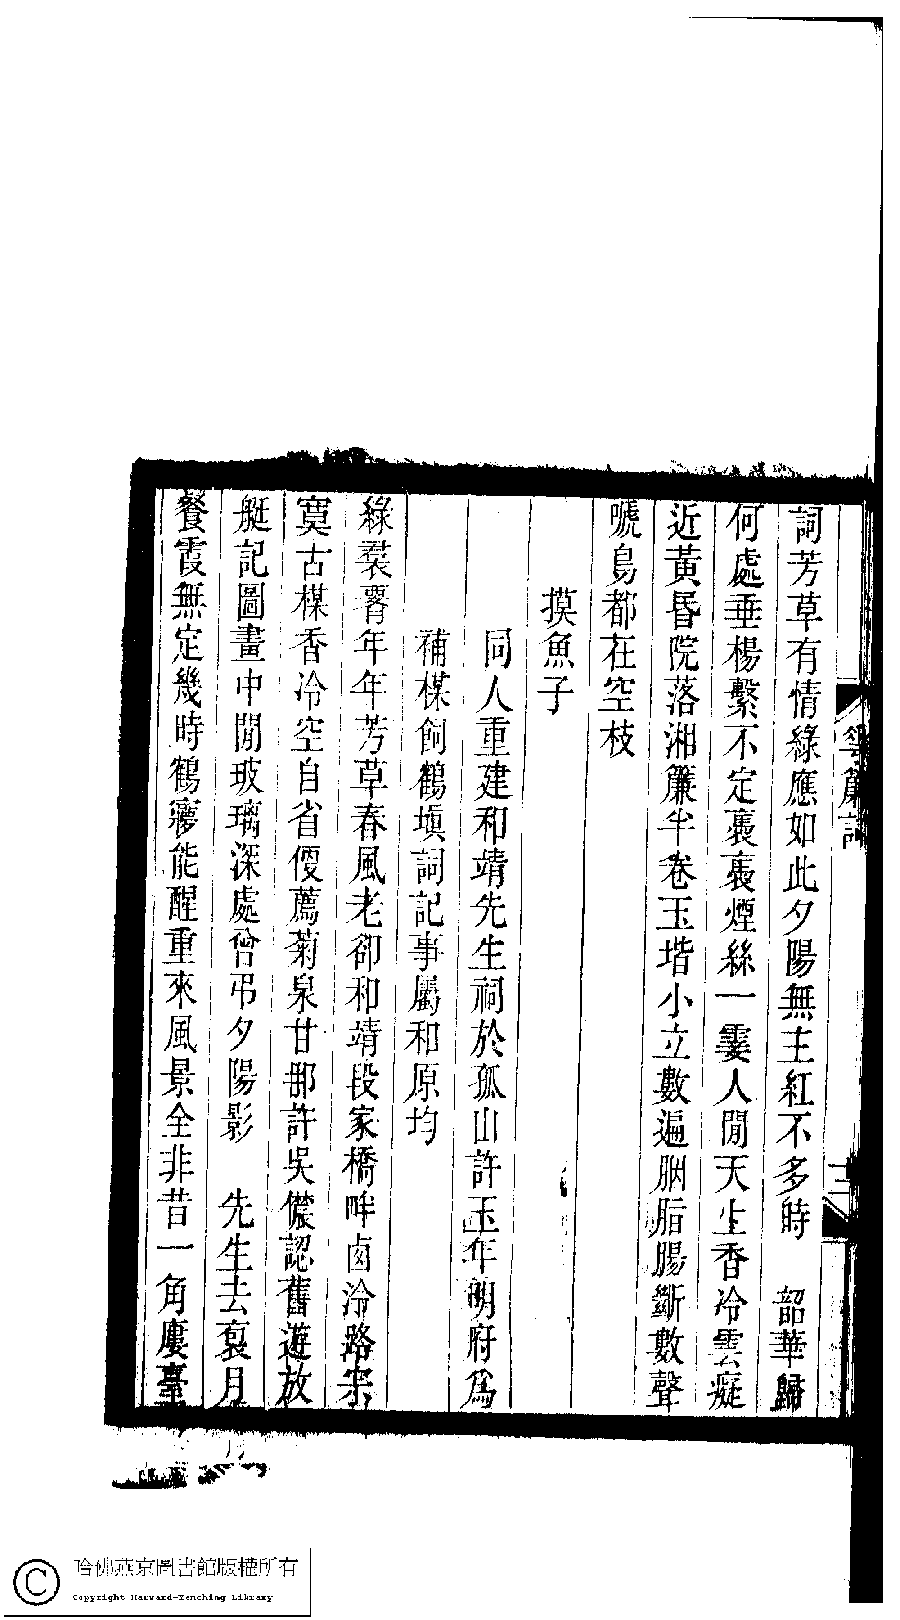 詞芳草有情綠應如此夕陽無主紅不多時　韶華歸
何處垂楊繫不定裊裊煙絲一霎人閒天生香冷雲癡
近黃昬院落湘簾半卷玉堦小立數遍胭脂腸斷數聲
號鳥都在空枝
摸魚子
同人重建和靖先生祠於孤山許玉年明府為
補楳飼鶴塡詞記事屬和原均
綠羣霫年年芳草春風老卻和靖段家橋畔卤泠路宗
寞古楳香冷空自省便薦菊泉甘那許吳儂認舊遊放
艇記圖畫中閒玻璃深處曾弔夕陽影　先生去袞月
餐霞無定幾時鶴夢能醒重來風景全非昔一角廔臺
簾詞
三
哈佛燕京圖書館版權所有
Copyright Harvard-Yenching Library